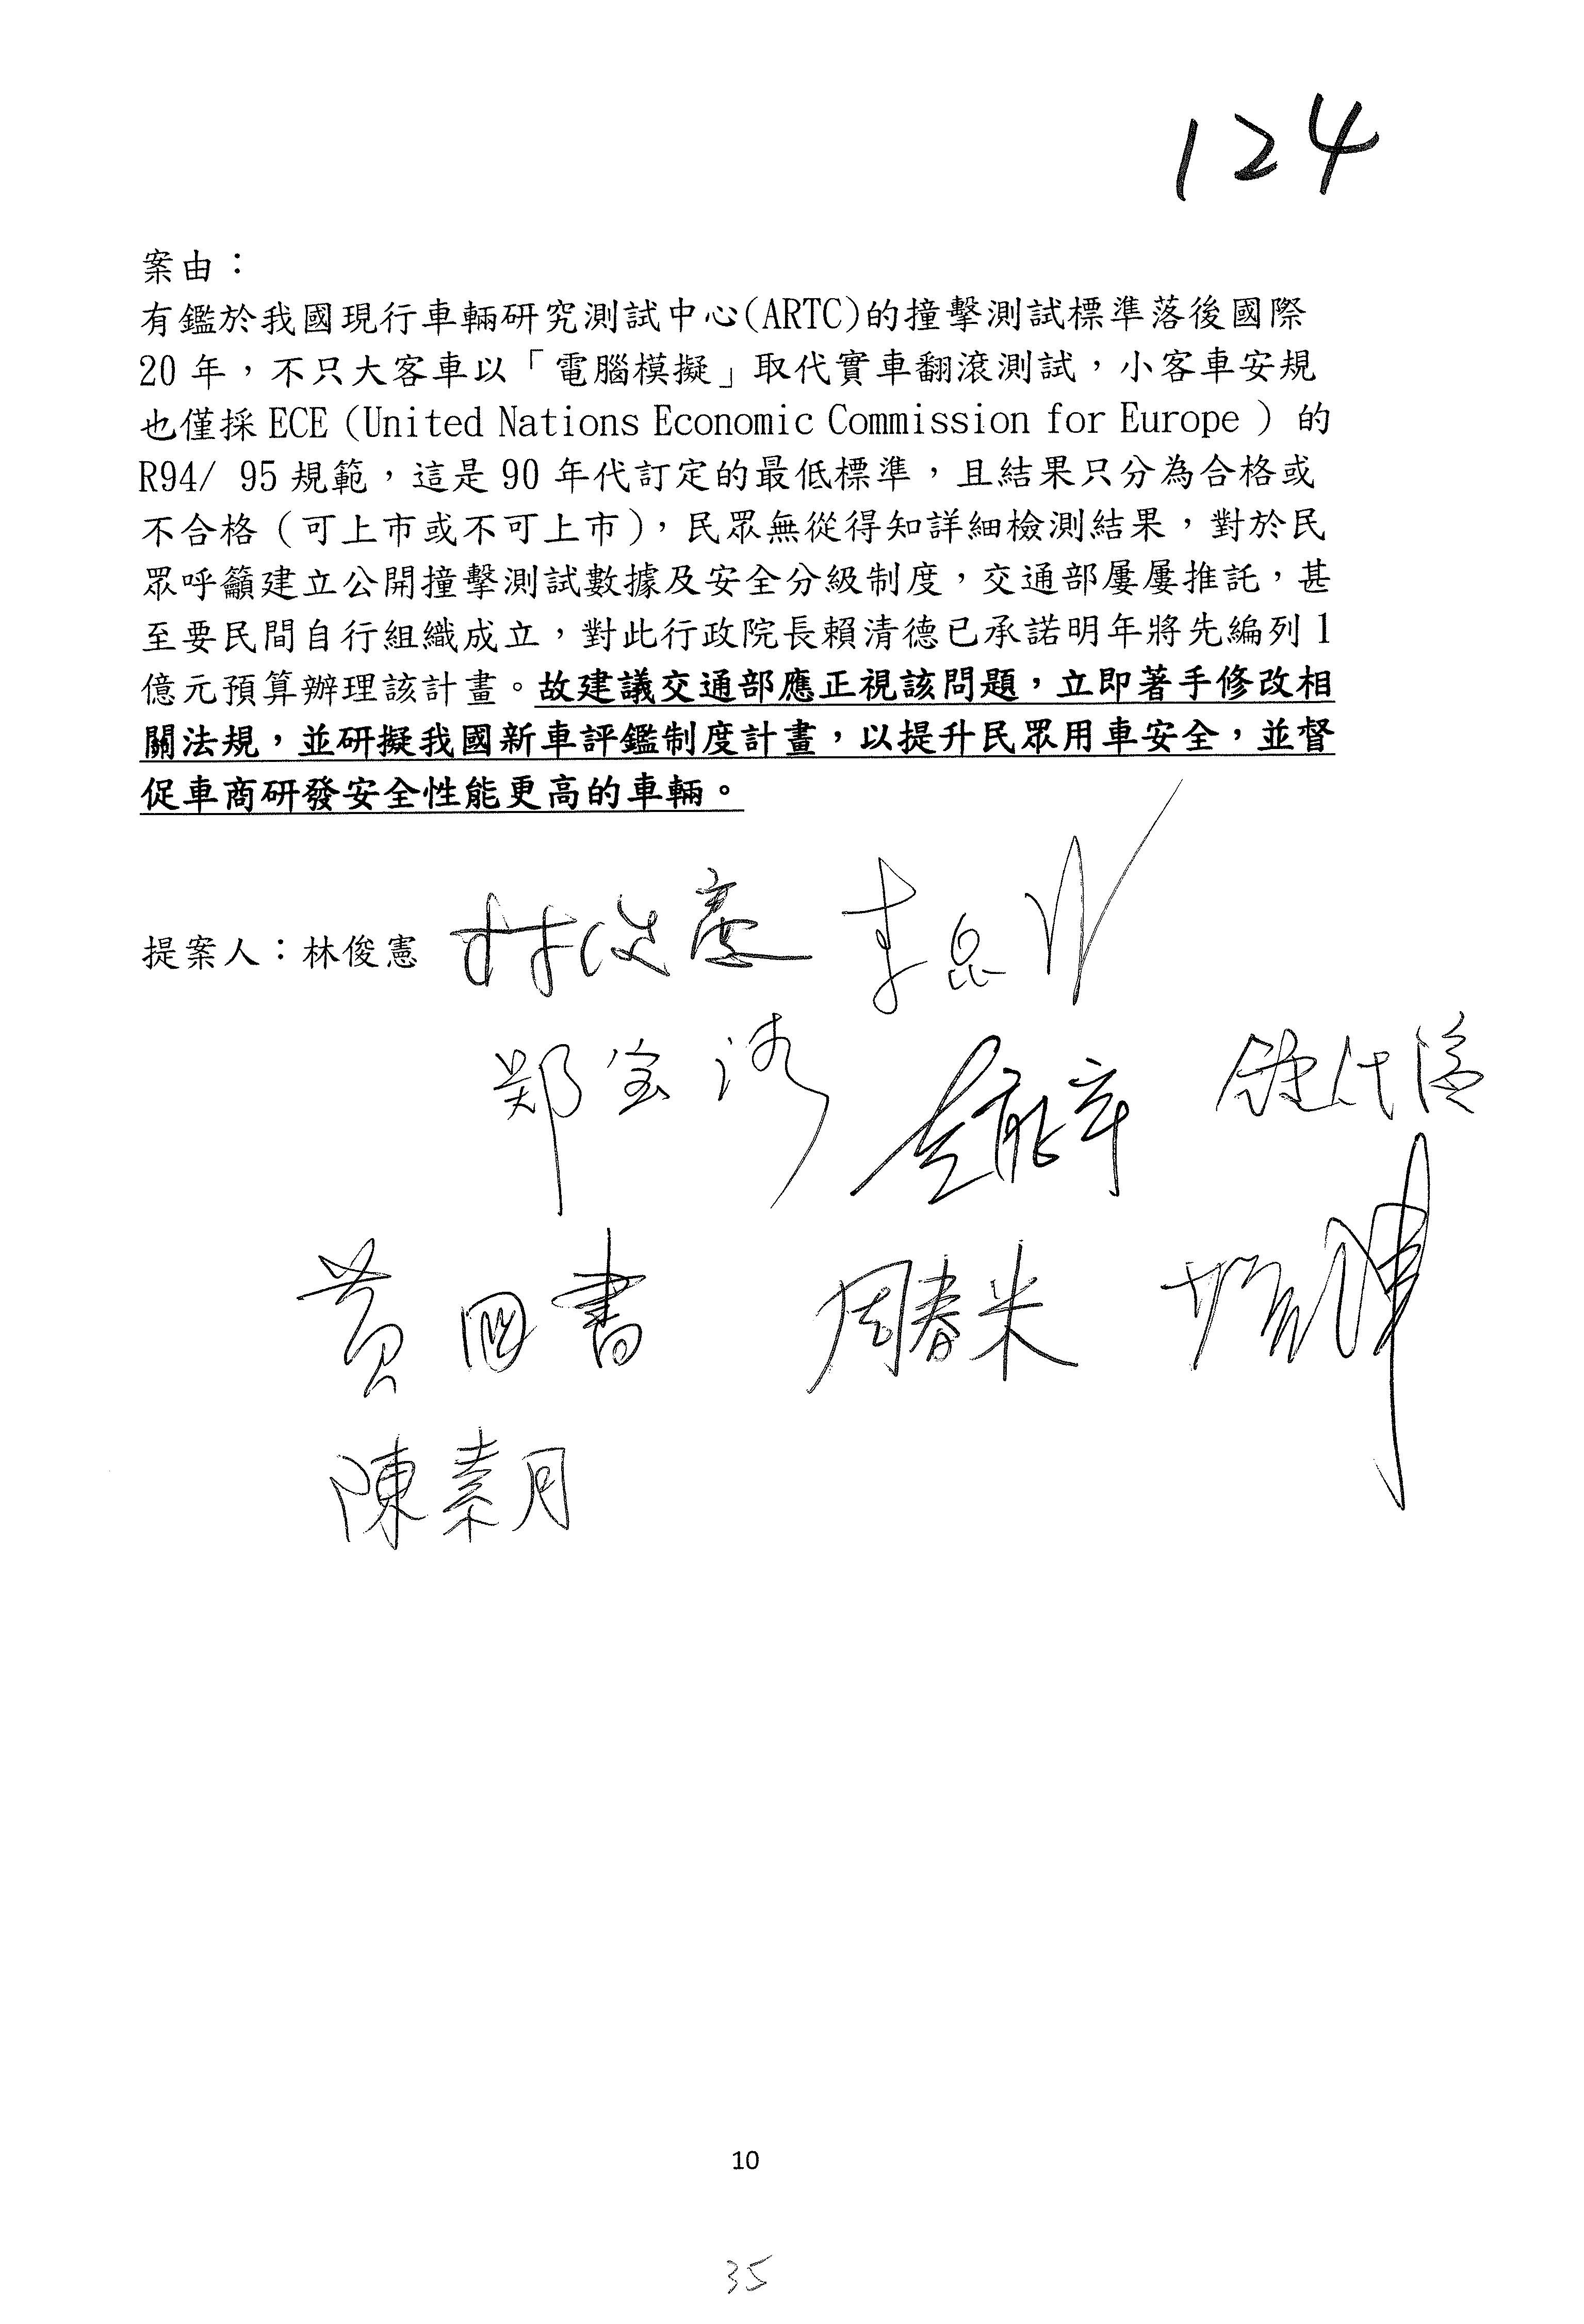 124
案由：
有鑑於我國現行車輛研究測試中心(ARTC)的撞擊測試標準落後國際
20 年，不只大客車以「電腦模擬」取代實車翻滾測試，小客車安規
也僅採 ECE (United Nations Economic Commission for Europe ) 的
R94/ 95 規範，這是 90 年代訂定的最低標準，且結果只分為合格或
不合格 (可上市或不可上市)，民眾無從得知詳細檢測結果，對於民
眾呼籲建立公開撞擊測試數據及安全分級制度，交通部屢屢推託，甚
至要民間自行組織成立，對此行政院長賴清德已承諾明年將先編列 1
億元預算辦理該計畫。故建議交通部應正視該問題，立即著手修改相
關法規，並研擬我國新車評鑑制度計畫，以提升民眾用車安全，並督
促車商研發安全性能更高的車輛。
提案人：林俊憲 林俊憲 李昆澤
鄭宝清
黃國書 周春米
陳素月
10
35